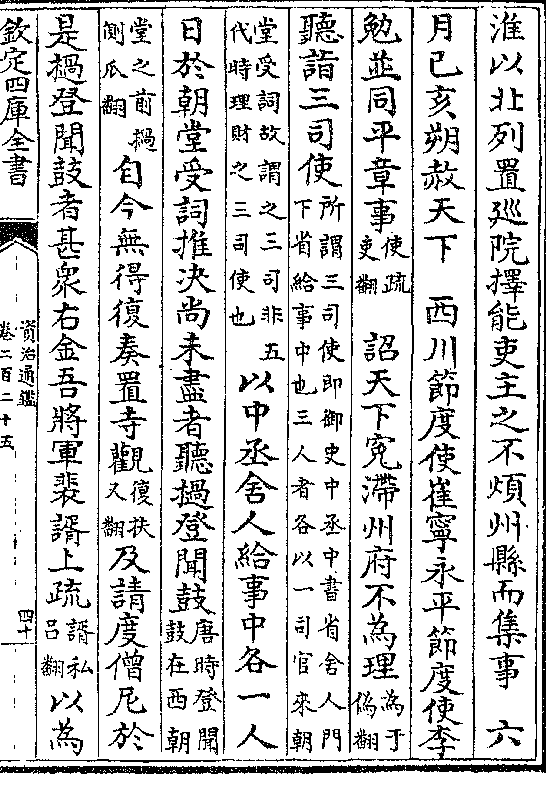 淮以北列置廵院擇能吏主之不煩州縣而集事　六
月已亥朔赦天下　西川節度使崔寧永平節度使李
勉並同平章事使疏吏翻　詔天下寃滯州府不為理為于偽翻
聽詣三司使所謂三司使即御史中丞中書省舍人門下省給事中也三人者各以一司官來朝
堂受詞故謂之三司非五代時理財之三司使也以中丞舍人給事中各一人
日於朝堂受詞推決尚未盡者聽撾登聞鼓唐時登聞鼓在西朝
堂之前撾側瓜翻自今無得復奏置寺觀復扶又翻及請度僧尼於
是撾登聞鼓者甚衆右金吾將軍裴諝上疏諝私吕翻以為
欽定四庫全書
資治通鑑
卷二百二十五
四十